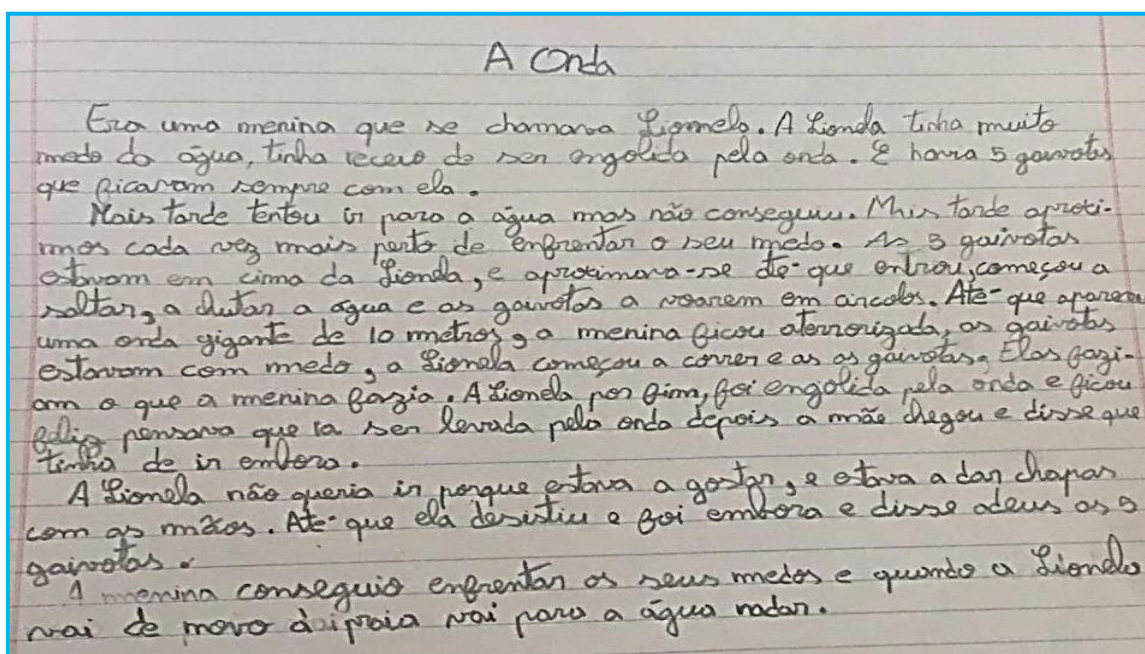 A Onda
Era uma menina que se chamava Lionela. A Lionda tinha muito
medo da água, tinha receio de ser engolida pela onda. E havia 5 gaivotas
que ficavam sempre com ela.
Mais tarde tentou ir para a água mas não conseguiu. Mais tarde aproxi-
mos cada vez mais perto de enfrentar o seu medo. As 5 gaivotas
estavam em cima da Lionda, e aproximava-se até-que entrou, começou a
saltar, a chutar a água e as gaivotas a voarem em circolos. Até-que apareceu
uma onda gigante de 10 metros, a menina ficou aterrorizada, as gaivotas
estavam com medo, a Lionela começou a correr e as as gaivotas. Elas fazi-
am o que a menina fazia. A Lionela por fim, foi engolida pela onda e ficou
feliz pensava que ia ser levada pela onda depois a mãe chegou e disse que
tinha de ir embora.
A Lionela não queria ir porque estava a gostar, e estava a dar chapas
com as mãos. Até-que ela desistiu e foi embora e disse adeus as 5
gaivotas.
A menina conseguio enfrentar os seus medos e quando a Lionela
vai de novo à praia vai para a água nadar.